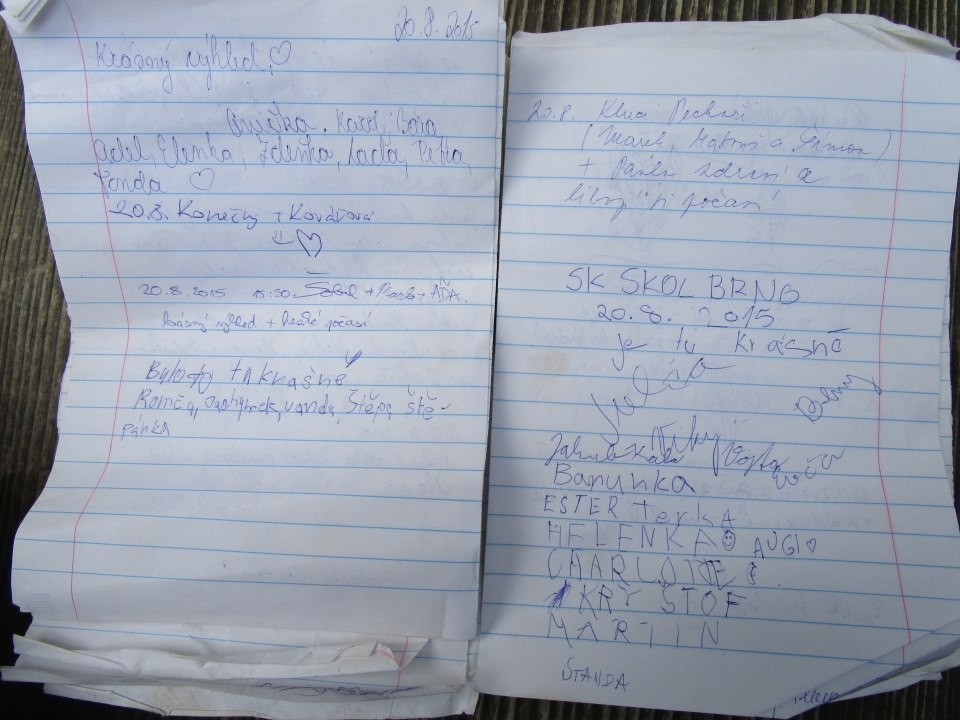 20.8.2015
Krásný výhled!
Anička, Karel, Bára,
Adél, Elenka, Zdenka, Laďa, Petra,
Fonda
20.8. Konečný + Kovářová
20.8.2015 15:30 + + AĎA
krásný výhled + hezké počasí
Bylo to tu krásné
Romča, Jáchymek, vanda, Štěpa, ště-
pánka
20.8.
(Marek, Matouš a Šimon)
+ Pavla zdraví a
si počasí
SK SKOL BRNO
20.8. 2015
je tu krásně
Vojta
Barunka
ESTER terkA
HELENKA AUGI
CHARLOTTE
KRYŠTOF
MARTIN
STANDA